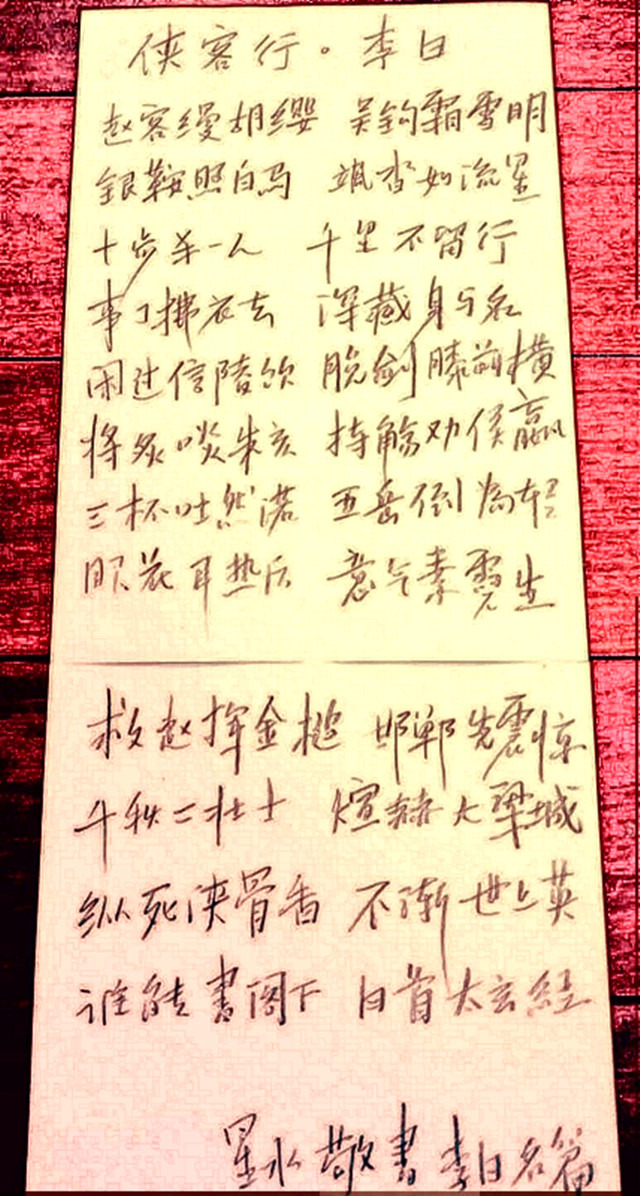 侠客行。李白
赵客缦胡缨 吴钩霜雪明
銀鞍照白马 飒沓如流星
十步杀一人 千里不留行
事了拂衣去 深藏身与名
闲过信陵饮 脱剑膝前横
将炙啖朱亥 持觞劝侯嬴
三杯吐然诺 五岳倒为轻
眼花耳热后 意气素霓生
救赵挥金槌 邯郸先震惊
千秋二壮士 煊赫大梁城
纵死侠骨香 不惭世上英
谁能書阁下 白首太玄經
星水敬書李白名篇